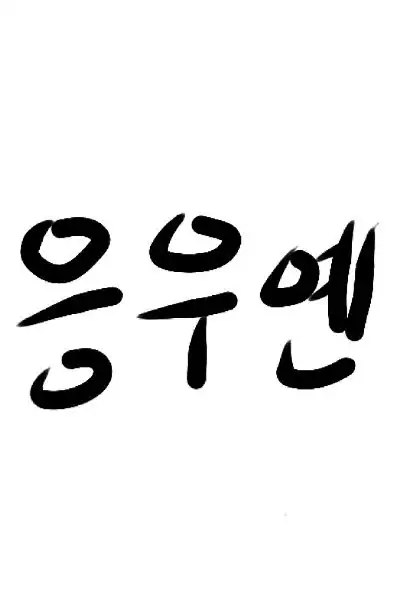 응우옌